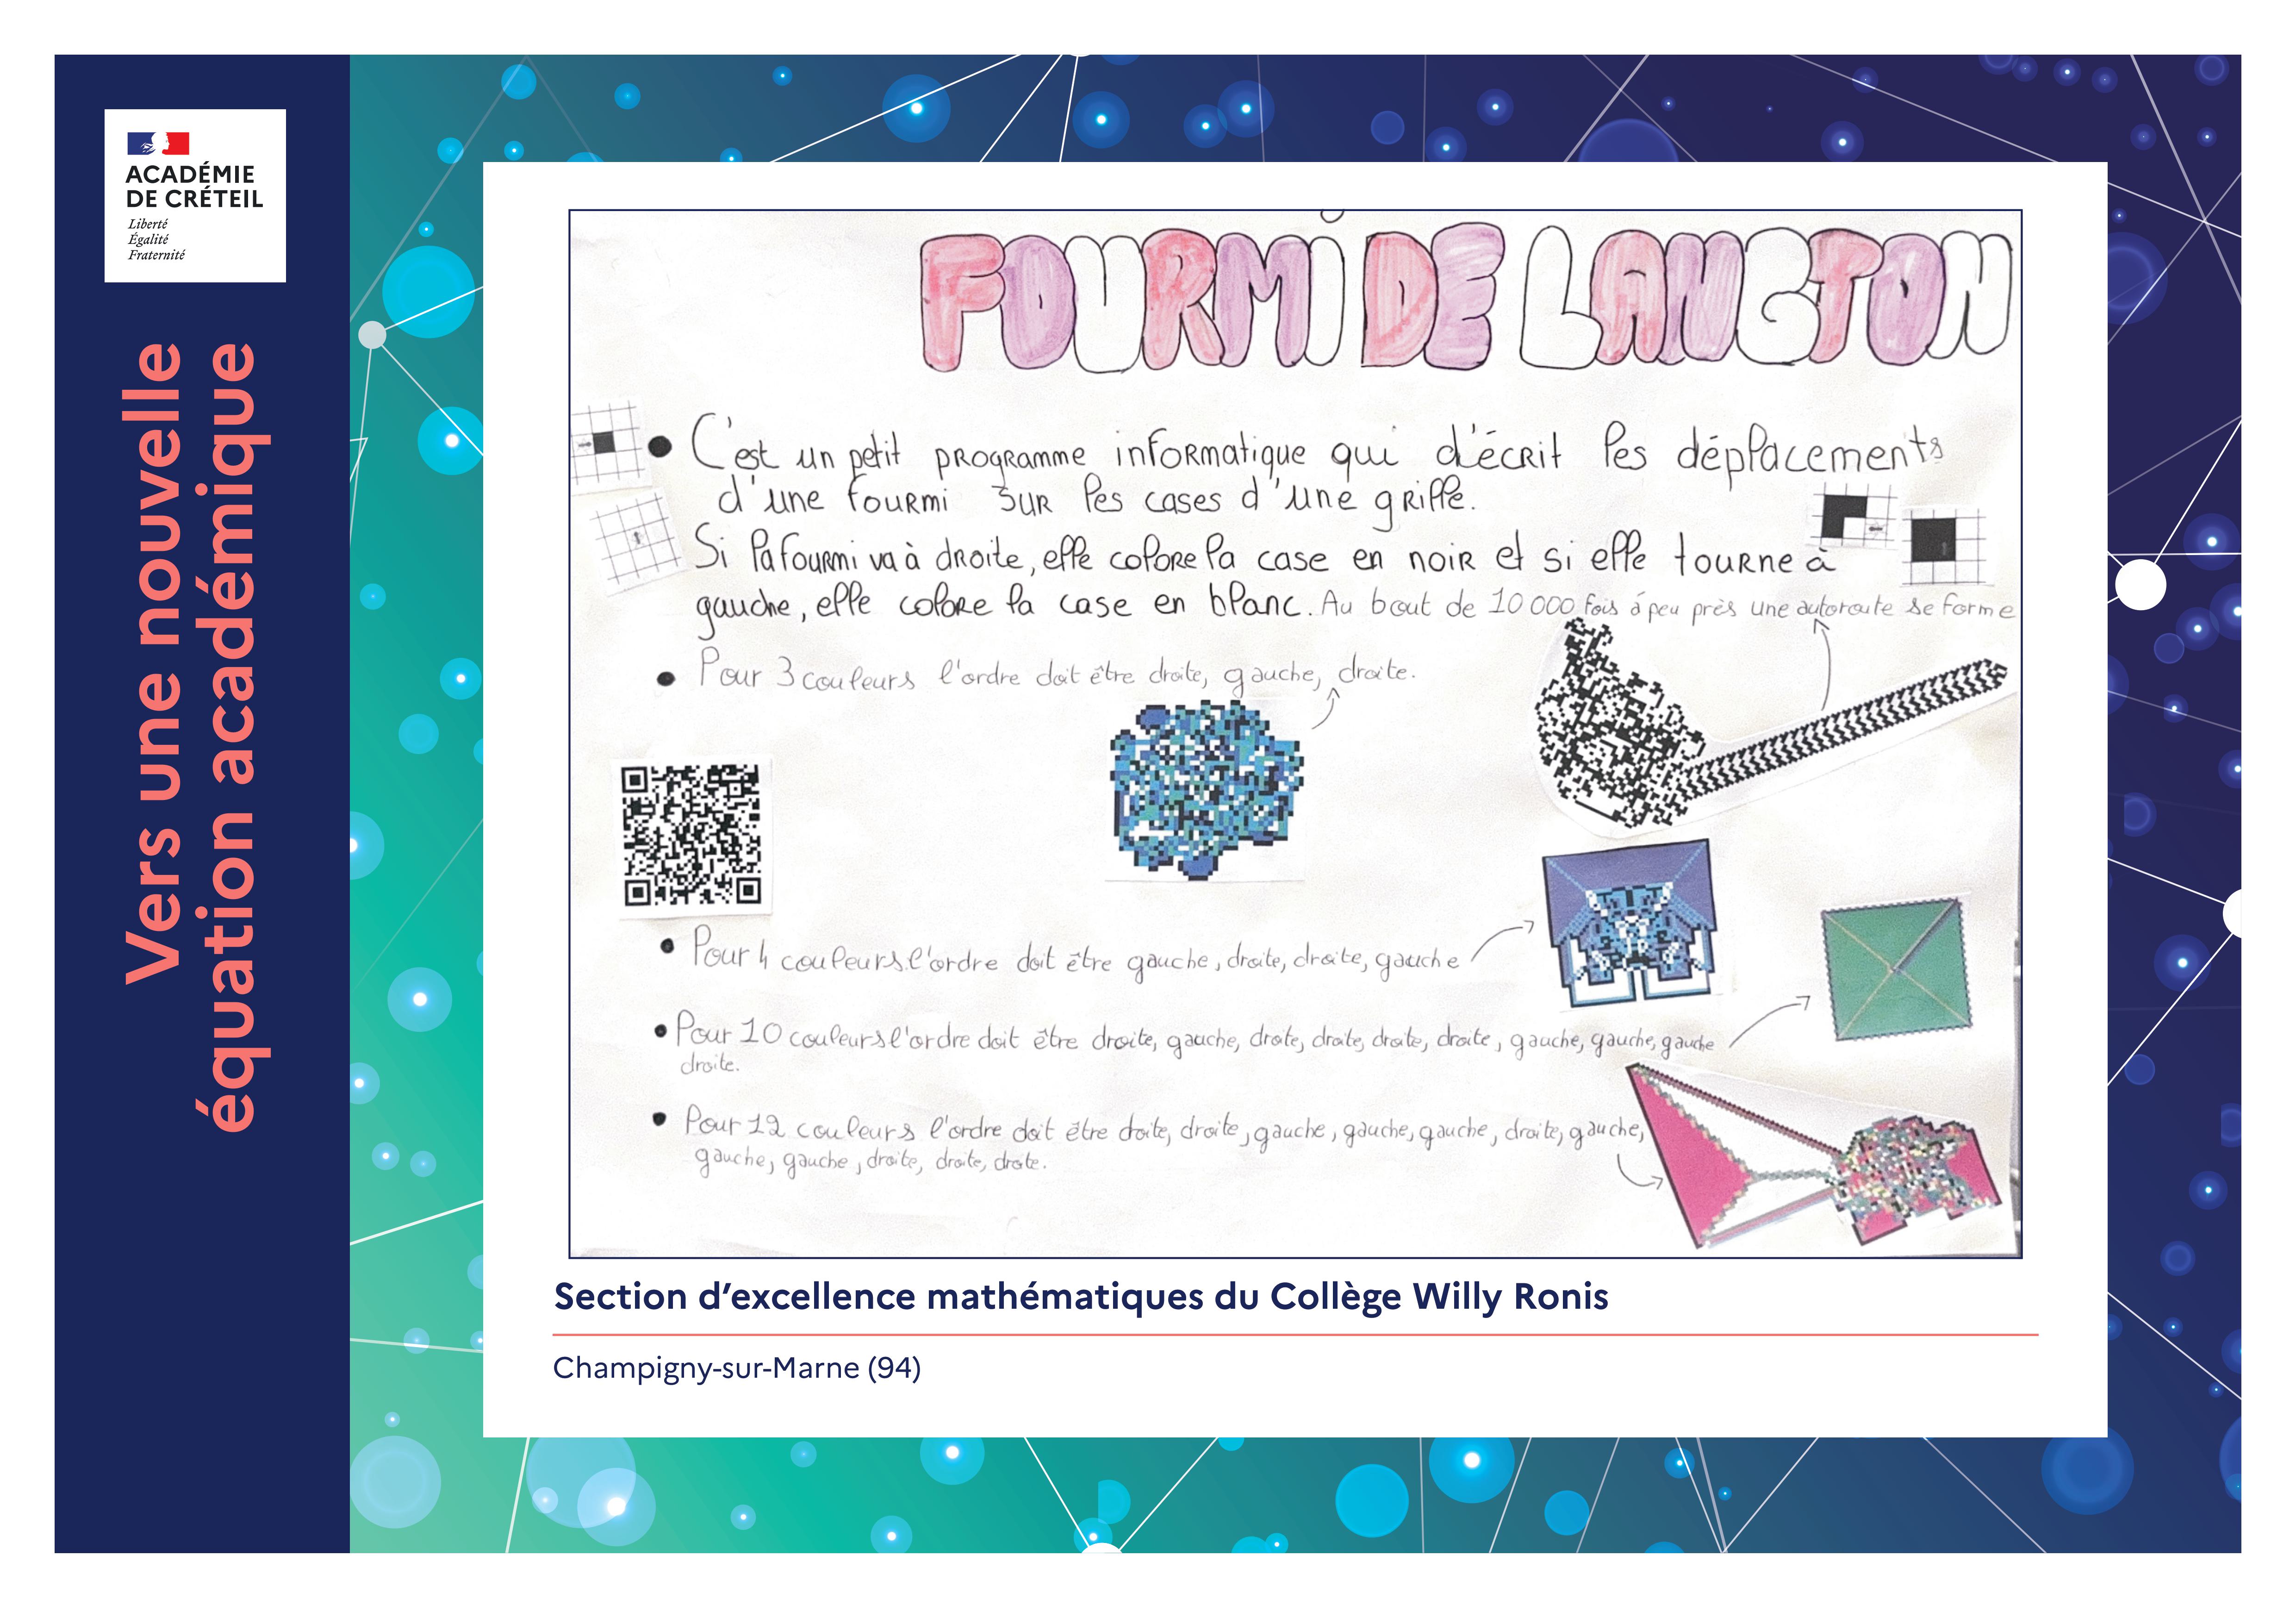 ACADÉMIE
DE CRÉTEIL
Liberté
Égalité
Fraternité
Vers une nouvelle
équation académique
FOURMI DE LANGTON
C'est un petit programme informatique qui d'écrit les déplacements
d'une fourmi sur les cases d'une grille.
Si la fourmi va à droite, elle colore la case en noir et si elle tourne à
gauche, elle colore la case en blanc. Au bout de 10 000 fois à peu près une autoroute se forme
Pour 3 couleurs l'ordre doit être droite, gauche, droite.
Pour 4 couleurs l'ordre doit être gauche, droite, droite, gauche
Pour 10 couleurs l'ordre doit être droite, gauche, droite, droite, droite, droite, gauche, gauche, gauche
droite.
Pour 12 couleurs l'ordre doit être droite, droite, gauche, gauche, gauche, droite, gauche,
gauche, gauche, droite, droite, droite.
Section d'excellence mathématiques du Collège Willy Ronis
Champigny-sur-Marne (94)